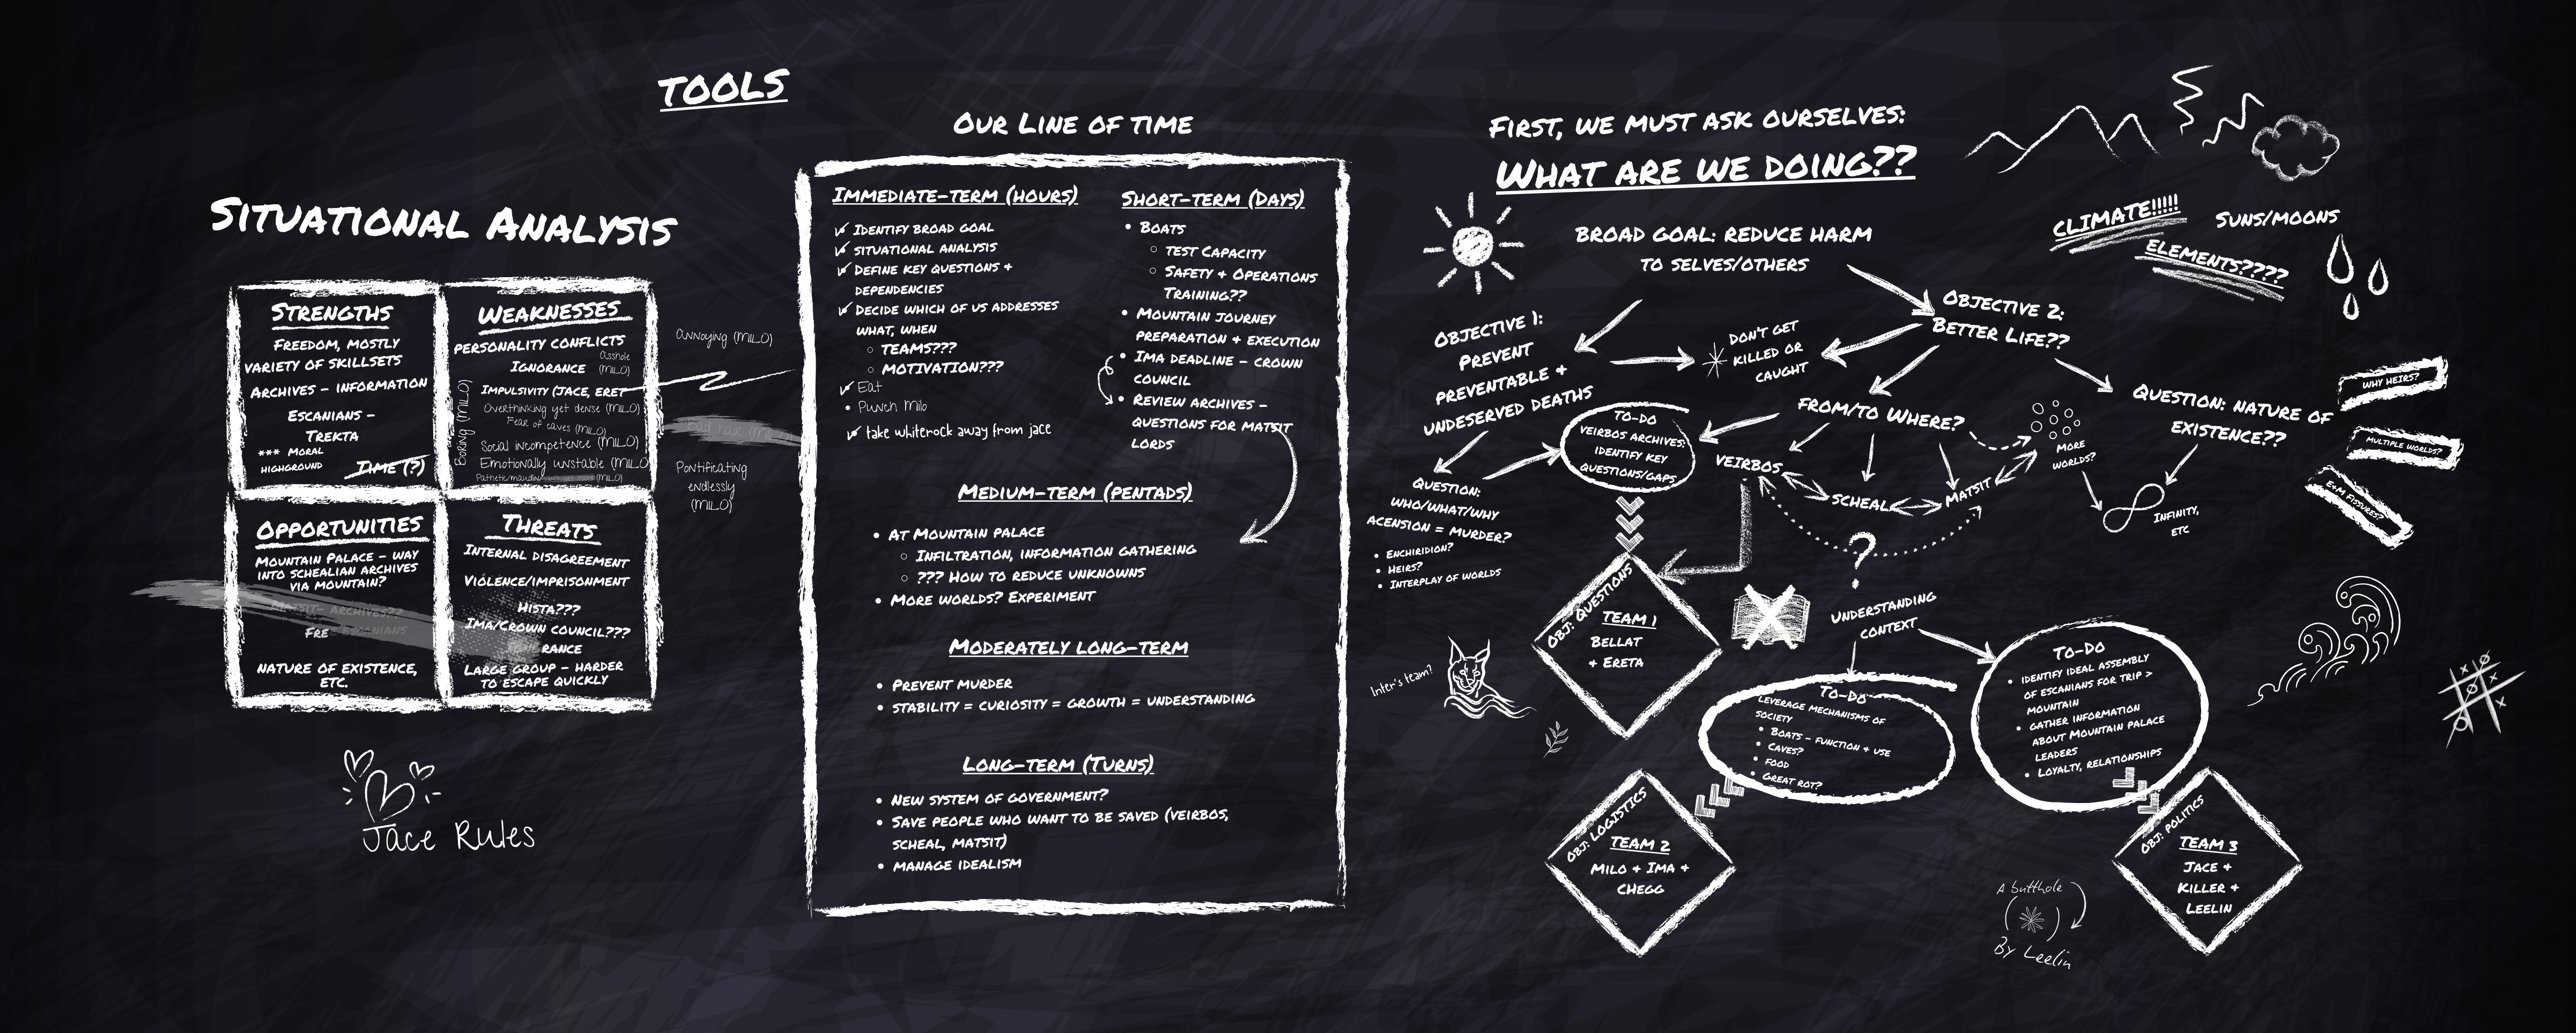 TOOLS
SITUATIONAL ANALYSIS
STRENGTHS
FREEDOM, MOSTLY
VARIETY OF SKILLSETS
ARCHIVES - INFORMATION
ESCANIANS -
TREKTA
*** MORAL
HIGHGROUND
TIME (?)
WEAKNESSES
PERSONALITY CONFLICTS
IGNORANCE
Asshole
(MILO)
IMPULSIVITY (JACE, ERET
Overthinking yet dense (MILO)
Fear of caves (MILO)
Social incompetence (MILO)
Emotionally unstable (MILO
Pathetic maudlin (MILO)
Boring (MILO)
Annoying (MILO)
Bad hair (MIL
Pontificating
endlessly
(MILO)
OPPORTUNITIES
MOUNTAIN PALACE - WAY
INTO SCHEALIAN ARCHIVES
VIA MOUNTAIN?
MATSIT- ARCHIVES??
FRE
NATURE OF EXISTENCE,
ETC.
THREATS
INTERNAL DISAGREEMENT
VIOLENCE/IMPRISONMENT
HISTA???
IMA/CROWN COUNCIL???
RANCE
LARGE GROUP - HARDER
TO ESCAPE QUICKLY
Jace Rules
OUR LINE OF TIME
IMMEDIATE-TERM (HOURS)
IDENTIFY BROAD GOAL
SITUATIONAL ANALYSIS
DEFINE KEY QUESTIONS &
DEPENDENCIES
DECIDE WHICH OF US ADDRESSES
WHAT, WHEN
TEAMS???
MOTIVATION???
Eat
Punch Milo
take whiterock away from jace
SHORT-TERM (DAYS)
BOATS
TEST CAPACITY
SAFETY & OPERATIONS
TRAINING??
MOUNTAIN JOURNEY
PREPARATION & EXECUTION
IMA DEADLINE - CROWN
COUNCIL
REVIEW ARCHIVES -
QUESTIONS FOR MATSIT
LORDS
MEDIUM-TERM (PENTADS)
AT MOUNTAIN PALACE
INFILTRATION, INFORMATION GATHERING
??? HOW TO REDUCE UNKNOWNS
MORE WORLDS? EXPERIMENT
MODERATELY LONG-TERM
PREVENT MURDER
STABILITY = CURIOSITY = GROWTH = UNDERSTANDING
LONG-TERM (TURNS)
NEW SYSTEM OF GOVERNMENT?
SAVE PEOPLE WHO WANT TO BE SAVED (VEIRBOS,
SCHEAL, MATSIT)
MANAGE IDEALISM
FIRST, WE MUST ASK OURSELVES:
WHAT ARE WE DOING??
BROAD GOAL: REDUCE HARM
TO SELVES/OTHERS
CLIMATE!!!!!
SUNS/MOONS
ELEMENTS????
OBJECTIVE 1:
PREVENT
PREVENTABLE &
UNDESERVED DEATHS
DON'T GET
KILLED OR
CAUGHT
OBJECTIVE 2:
BETTER LIFE??
FROM/TO WHERE?
QUESTION: NATURE OF
EXISTENCE??
WHY HEIRS?
MULTIPLE WORLDS?
E&M FISSURES?
TO-DO
VEIRBOS ARCHIVES:
IDENTIFY KEY
QUESTIONS/GAPS
VEIRBOS
SCHEAL
MATSIT
MORE
WORLDS?
INFINITY,
ETC
QUESTION:
WHO/WHAT/WHY
ACENSION = MURDER?
ENCHIRIDION?
HEIRS?
INTERPLAY OF WORLDS
?
OBJ: QUESTIONS
TEAM 1
BELLAT
& ERETA
UNDERSTANDING
CONTEXT
Inter's team?
TO-DO
LEVERAGE MECHANISMS OF
SOCIETY
BOATS - FUNCTION & USE
CAVES?
FOOD
GREAT ROT?
TO-DO
IDENTIFY IDEAL ASSEMBLY
OF ESCANIANS FOR TRIP >
MOUNTAIN
GATHER INFORMATION
ABOUT MOUNTAIN PALACE
LEADERS
LOYALTY, RELATIONSHIPS
OBJ: LOGISTICS
TEAM 2
MILO & IMA &
CHEGG
OBJ: POLITICS
TEAM 3
JACE &
KILLER &
LEELIN
A butthole
By Leelin